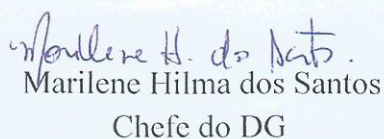 Marilene H. dos Santos.
Marilene Hilma dos Santos
Chefe do DG